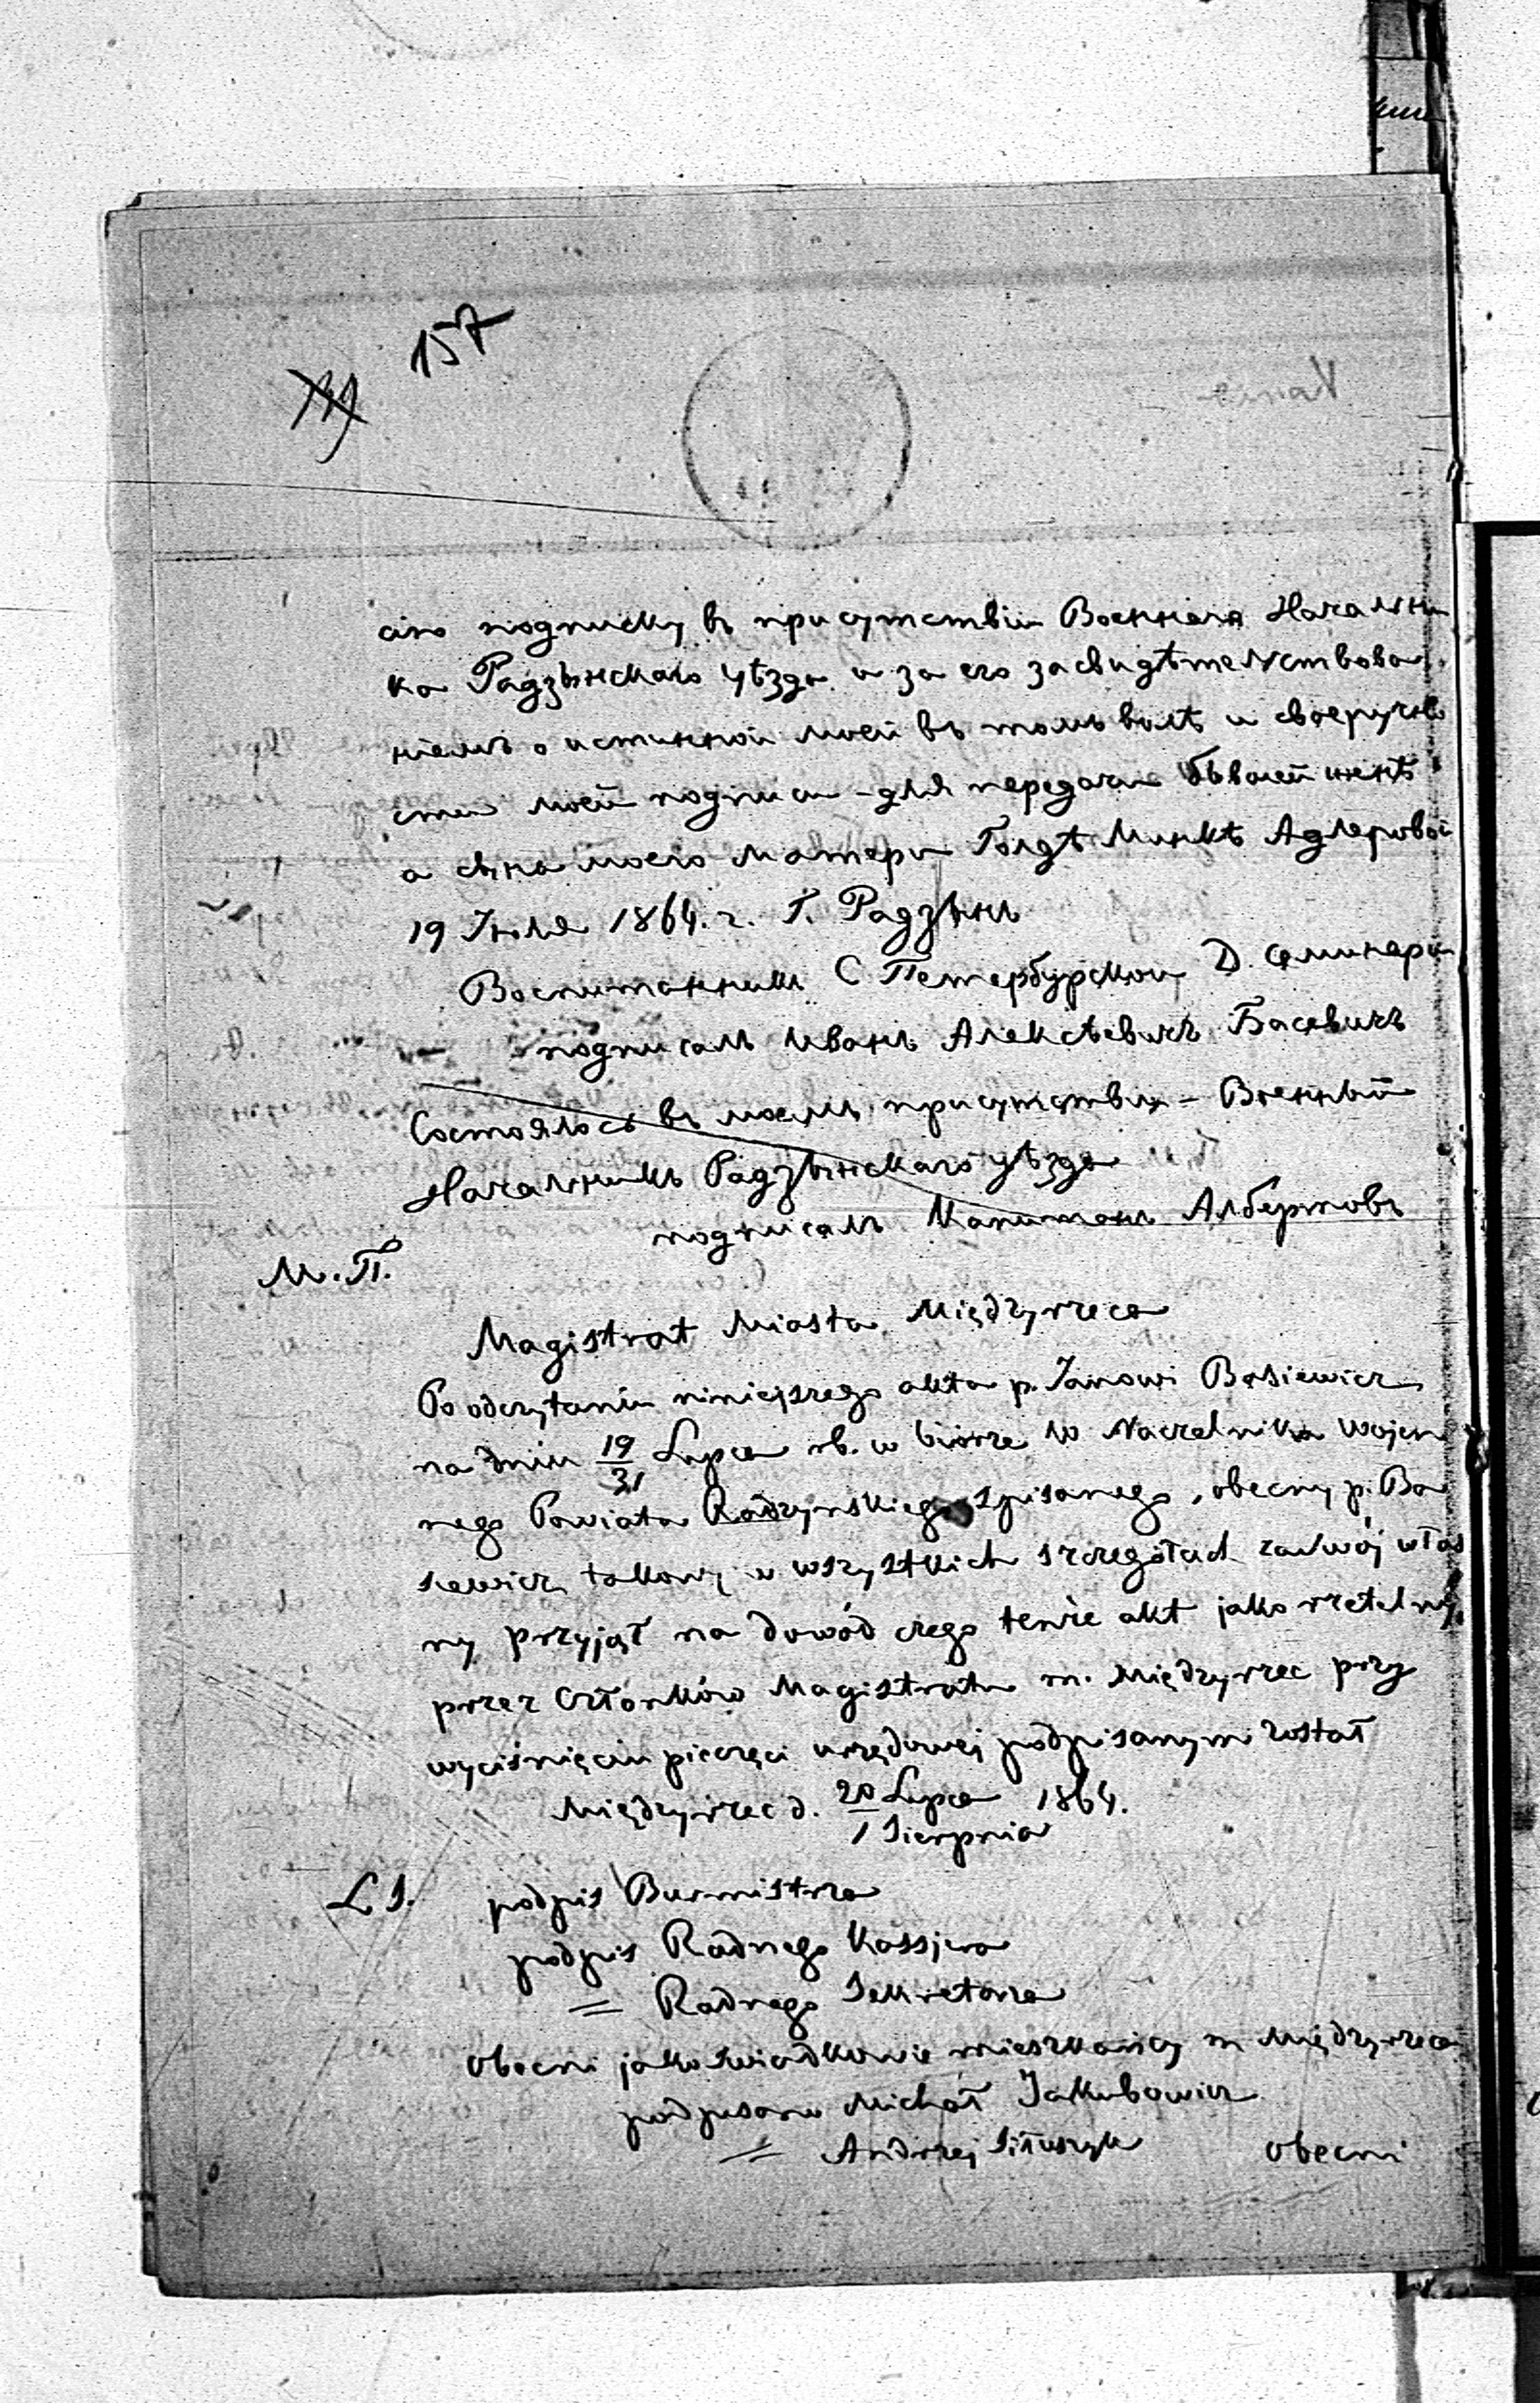 157
сію подписку въ присутствіи Военнаго Начальни
ка Радзынскаго уѣзда и за его засвидѣтельствова
ніемъ о истинной моей въ томъ волѣ и своеручно
сти моей подписи - для передачи бывшей женѣ
а сына моего матери Голдѣ Минкѣ Адлеровой
19 Іюля 1864. г. Г. Радзынь
Воспитанникъ С Петербурской Д. Семинаріи
подписалъ Иванъ Алексѣевичъ Басевичъ
Состоялось въ моемъ присутствіи - Военный
Начальникъ Радзынскаго уѣзда
подписалъ Капитанъ Албертовъ
М.П.
Magistrat Miasta Międzyrzeca
Po odczytaniu niniejszego akta p. Janowi Basiewicz
na dniu 19/31 Lipca rb. w biórze W Naczelnika Wojen
nego Powiata Radzynskiego spisanego, obecny p. Ba
siewicz takowy w wszystkich szczegółach za swój włas
ny przyjął na dowód czego tenże akt jako rzetelny
przez Członków Magistratu m. Międzyrzec przy
wyciśnięciu pieczęci urzędowej podpisanym został
Międzyrzec d. 20 Lipca / 1 Sierpnia 1864.
L S. podpis Burmistrza
podpis Radnego Kassjera
= Radnego Sekretarza
Obecni jako swiadkowie mieszkańcy m Międzyrzeca
podpisano Michał Jakubowicz
= Andrzej
Obecni